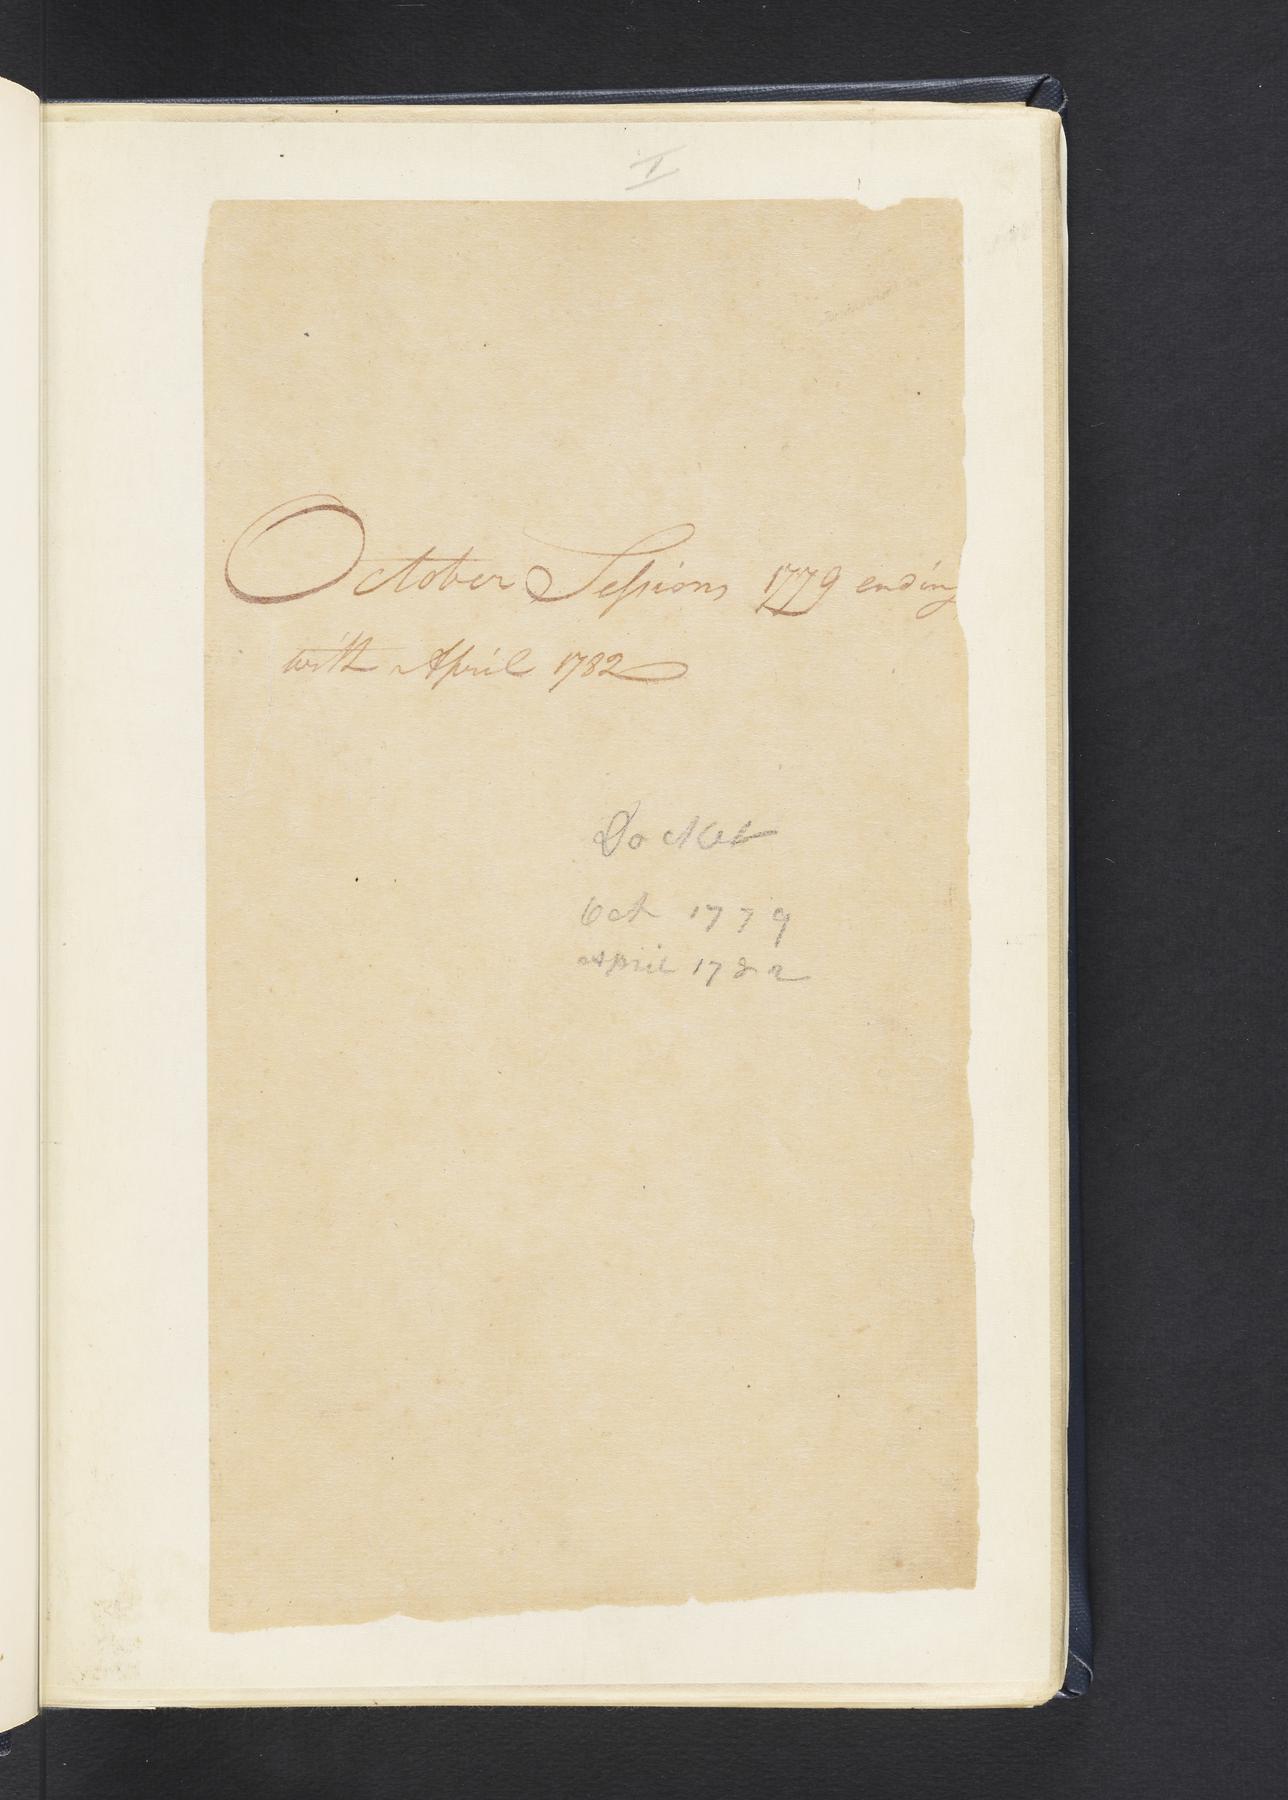 I
October Sessions 1779 ending
with April 1782
Docket
Oct 1779
April 1782